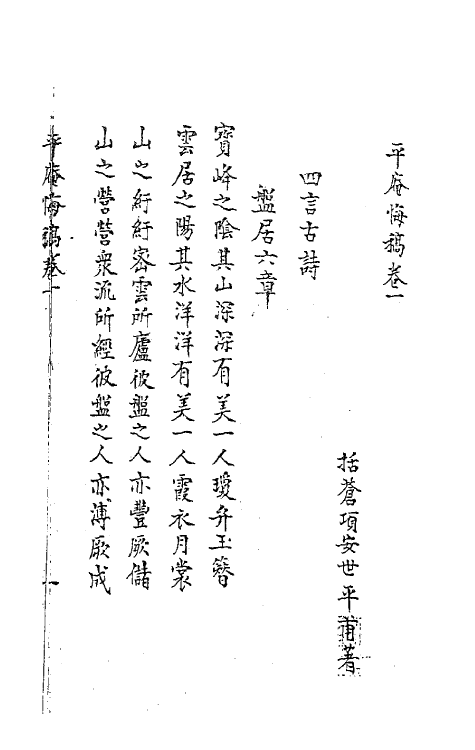 平庵悔稿卷一
括蒼項安世平甫著
四言古詩
盤居六章
寶峰之陰其山深深有美一人瓊弁玉簪
雲居之陽其水洋洋有美一人霞衣月裳
山之紆紆密雲所廬彼盤之人亦豐厥儲
山之營營衆流所經彼盤之人亦溥厥成
平庵悔稿卷一
一